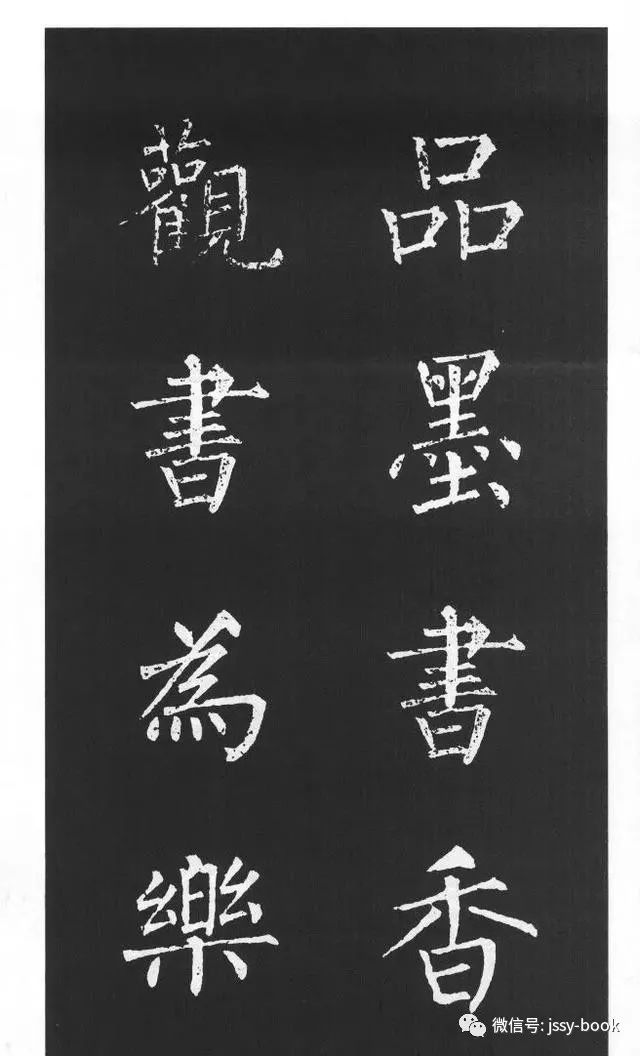 品墨書香
觀書為樂
微信号: jssy-book